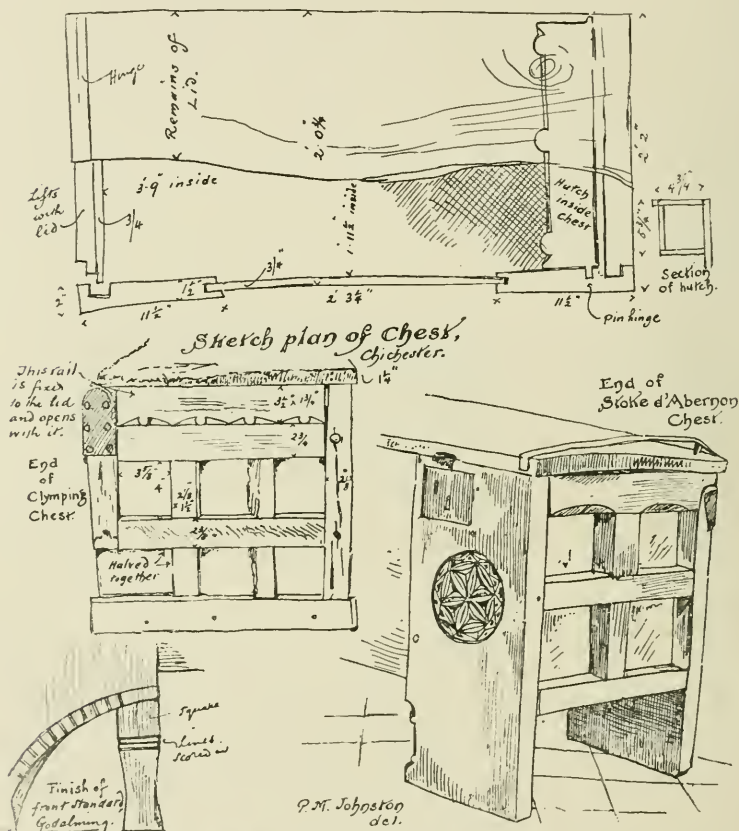 Hinge
Remains of
Lid.
2' 0 3/4"
2' 2"
Lifts
with
lid
3/4
3'·9" inside
1' 11 1/2" inside
Hutch
inside
Chest
4 3/4"
Section
of hutch.
2"
11 1/2"
1 1/2"
3/4"
2' 3 3/4"
11 1/2"
Pin hinge
Sketch plan of Chest,
Chichester.
This rail
is fixed
to the lid
and opens
with it.
1 1/4"
2 3/4
End
of
Clymping
Chest.
4
Halved
together
End of
Stoke d'Abernon
Chest.
Square
Lines
scored
Finish of
front standard
Godalming.
P.M. Johnston
del.